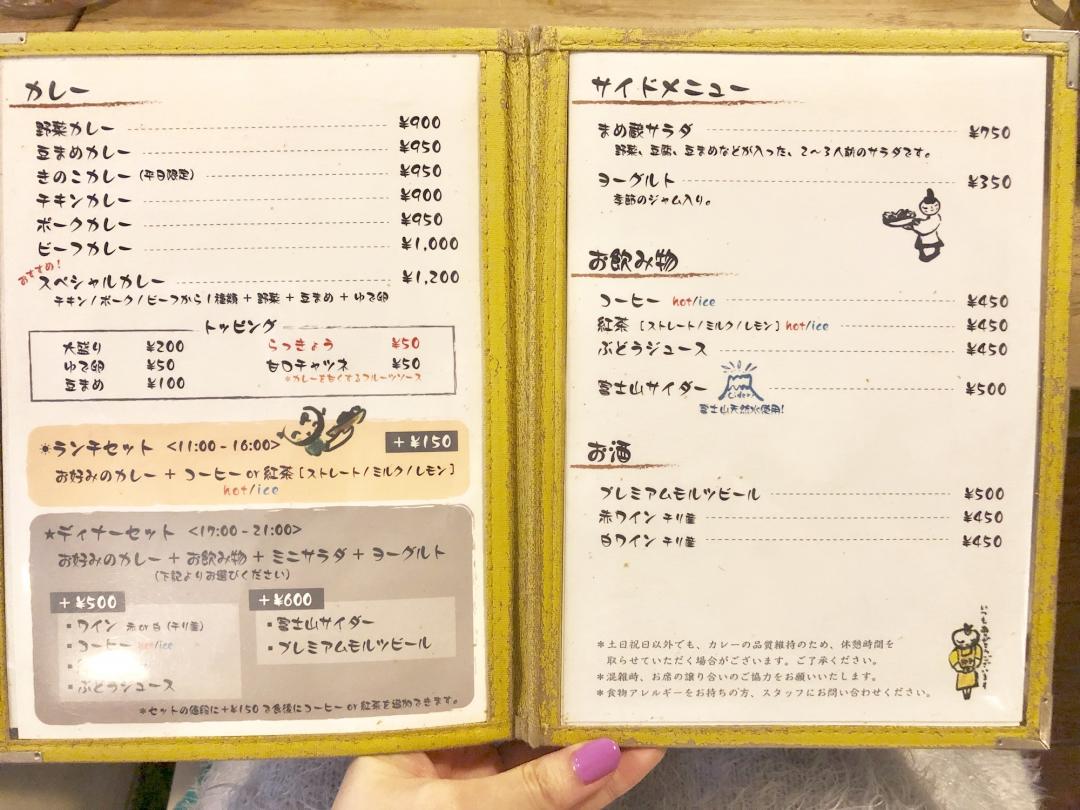 カレー
野菜カレー ¥900
豆まめカレー ¥950
きのこカレー (平日限定) ¥950
チキンカレー ¥900
ポークカレー ¥950
ビーフカレー ¥1,000
おすすめ!
スペシャルカレー ¥1,200
チキン/ポーク/ビーフから1種類 + 野菜 + 豆まめ + ゆで卵
トッピング
大盛り ¥200 らっきょう ¥50
ゆで卵 ¥50 甘口チャツネ ¥50
*カレーを甘くするフルーツソース
豆まめ ¥100
☀ランチセット <11:00-16:00> +¥150
お好みのカレー + コーヒー or 紅茶 [ストレート/ミルク/レモン]
hot/ice
★ディナーセット <17:00-21:00>
お好みのカレー + お飲み物 + ミニサラダ + ヨーグルト
(下記よりお選びください)
+¥500
▪ワイン 赤 or 白 (チリ産)
▪コーヒー hot/ice
▪ぶどうジュース
+¥600
▪富士山サイダー
▪プレミアムモルツビール
*セットの値段に+¥150で食後にコーヒー or 紅茶を追加できます。
サイドメニュー
まめ蔵サラダ ¥750
野菜、豆腐、豆まめなどが入った、2〜3人前のサラダです。
ヨーグルト ¥350
季節のジャム入り。
お飲み物
コーヒー hot/ice ¥450
紅茶 [ストレート/ミルク/レモン] hot/ice ¥450
ぶどうジュース ¥450
富士山サイダー Cider ¥500
富士山天然水使用!
お酒
プレミアムモルツビール ¥500
赤ワイン チリ産 ¥450
白ワイン チリ産 ¥450
*土日祝日以外でも、カレーの品質維持のため、休憩時間を
取らせていただく場合がございます。ご了承ください。
*混雑時、お席の譲り合いのご協力をお願いいたします。
*食物アレルギーをお持ちの方、スタッフにお問い合わせください。